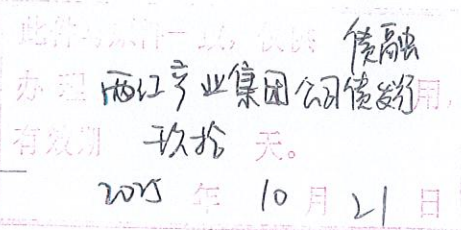 此件与原件一致，仅供 债融
办理 两江产业集团公司债发行 用，
有效期 玖拾 天。
2025 年 10 月 21 日